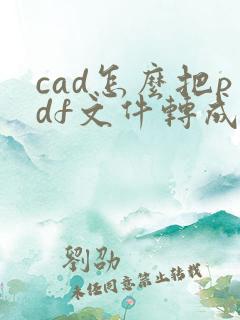 cad怎麼把p
df文件轉成
劉劭
未經同意禁止轉載